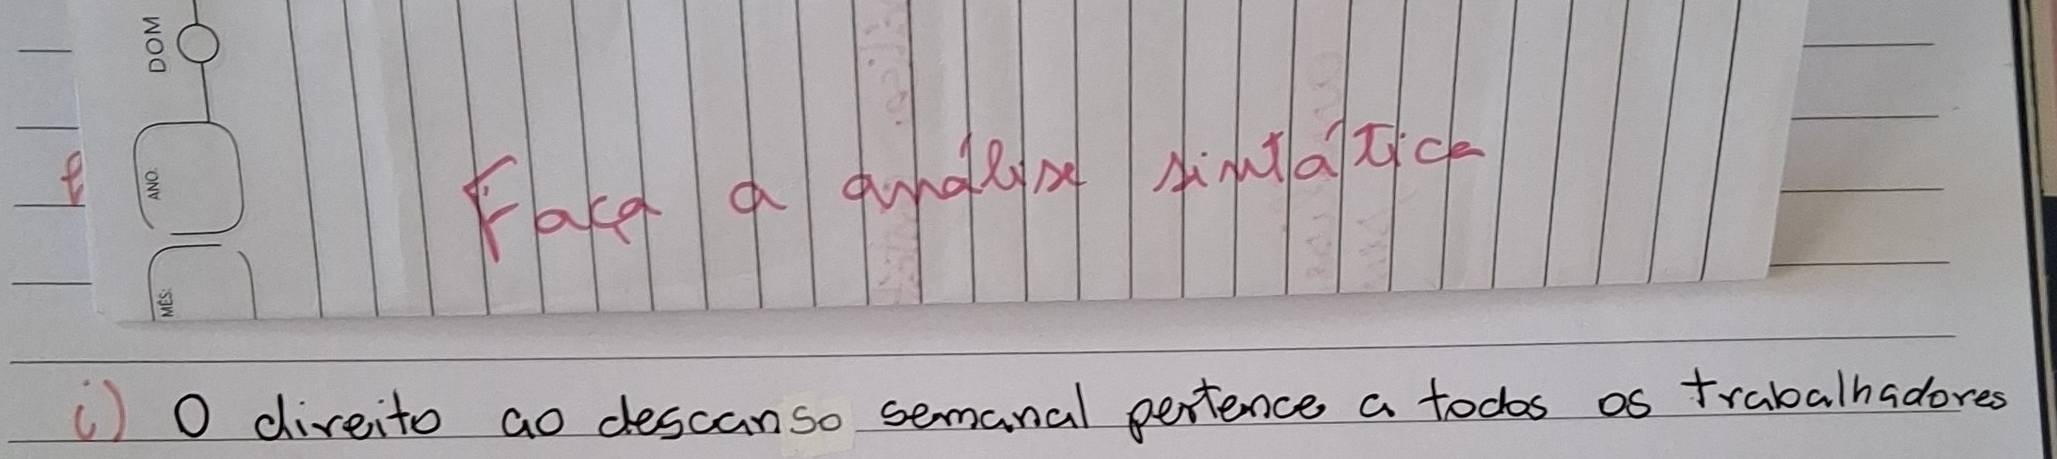 DOM
ANO:
MÊS:
Faça a análise sintática
i) O direito ao descanso semanal pertence a todos os trabalhadores